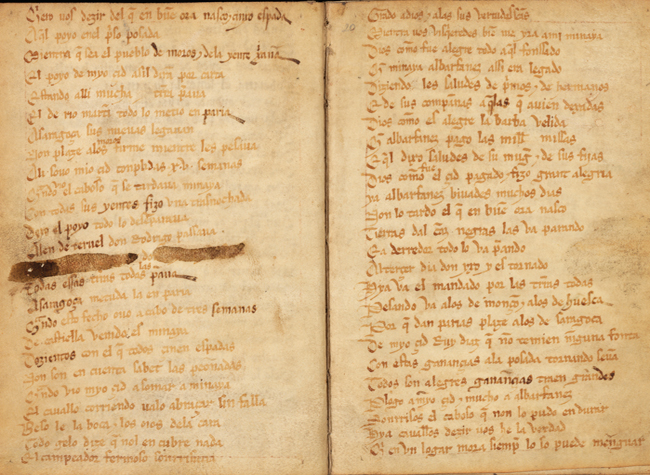 Q̃ero vos dezir del q̃ en buẽ ora nasco & cinxo espada
Aq̃l poyo en el p̃so posada
Mientra q̃ sea el pueblo de moros & dela yente xp̃iana
El poyo de myo çid asil dirã por carta
Estando alli mucha trr̃a paraua
El de rio martĩ todo lo metio en paria
Asaragoça sus nueuas legauan
Non plaze alos moros firme mientre les pesaua
Ali souo mio çid conplidas .xv. semanas
Qñdo vio el caboso q̃ se tardaua minaya
Con todas sus yentes fizo vna trasnochada
Dexo el poyo todo lo desenparaua
Allen de teruel don Rodrigo passaua
Todas essas trr̃as todas las p̃aua
Asaragoça metuda la en paria
Qñdo esto fecho ouo a cabo de tres semanas
De castiella venido es minaya
Dozientos con el q̃ todos çinen espadas
Non son en cuenta sabet las peonadas
Qñdo vio myo çid asomar a minaya
El cauallo corriendo valo abraçar sin falla
Beso le la boca & los oios dela cara
Todo gelo dize q̃ nol en cubre nada
El campeador fermoso sonrrisaua
Grado adios & alas sus vertudes sc̃as
Mientra vos visq̃eredes bien me yra amj minaya
Dios com̃o fue alegre todo aq̃l fonssado
Q̃ minaya albarfanez assi era legado
Diziendo les saludes de p̃mos & de hermanos
E de sus compañas aq̃las q̃ auien dexadas
Dios com̃o es alegre la barba velida
Q̃ albarfanez pago las mill missas
E q̃l dixo saludes de su mug̃ & de sus fijas
Dios com̃o fue el çid pagado & fizo grant alegria
Ya albarfanez biuades muchos dias
Non lo tardo el q̃ en buẽ ora nasco
Tierras dal can̄z negras las va parando
E a derredor todo lo va p̃ando
Al terçer dia don yxo y es tornado
Hya va el mandado por las trr̃as todas
Pesando va alos de monçõ & alos de huesca
Por q̃ dan parias plaze alos de saragoça
De myo çid Ruy diaz q̃ no temien ninguna fonta
Con estas ganançias ala posada tornando seuã
Todos son alegres ganançias traen grandes
Plogo a myo çid & mucho a albarfanez
Sonrrisos el caboso q̃ non lo pudo endurar
Hya caualleros dezir vos he la verdad
Q̃ en vn logar mora siemp̃ lo so puede menguar